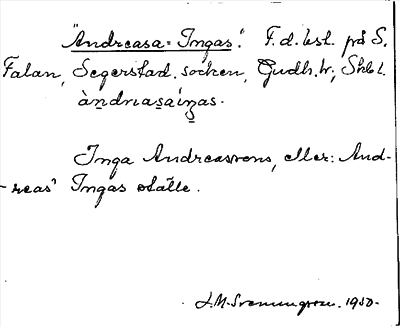 "Andreasa-Ingas". F.d. best. på S.
Falan, Segerstad socken, Gudh. hr; Skbl.
àndrıasaíŋas.
Inga Andreassons, eller: And-
reas' Ingas ställe.
J.M. 1950.